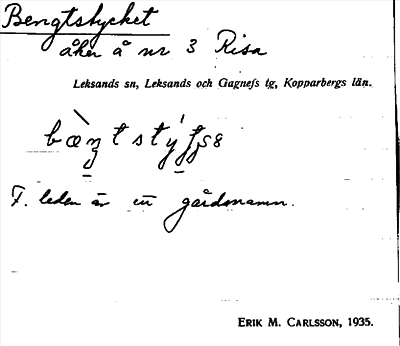 Bengtstycket
åker å nr 3 Risa
Leksands sn, Leksands och Gagnefs tg, Kopparbergs län.
F. leden är ett gårdsnamn.
ERIK M. CARLSSON, 1935.